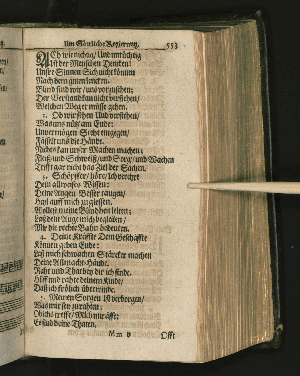 Um Göttliche Regierung. 553
ACh wie nichtig/ Und untüchtig
Ist der Menschen Dencken!
Unsre Sinnen Sich nicht können
Nach dem guten lencken.
Blind sind wir/ uns vorzusehen;
Der Verstand kan nicht verstehen/
Welchen Weg er müsse gehen.
2. Ob wir sehen Und verstehen/
Was uns nütz am Ende:
Unvermögen Steht entgegen/
Fässelt uns die Hände.
Nichts kan unser Wachen machen;
Fleiß und Schweiß/ und Sorg/ und Wachen
Trifft gar nicht das Ziel der Sachen.
3. Schöpffer/ höre! Ich verehre
Dein allweises Wissen:
Deine Augen Besser taugen/
Heyl auff mich zu giessen.
Wollest meine Blindheit leiten;
Laß dein Auge mich begleiten/
Mir die rechte Bahn bedeuten.
4. Deine Kräffte Dem Geschäffte
Können geben Ende:
Laß mich schwachen Stärcker machen
Deine Allmacht-Hände.
Raht und That bey dir ich finde.
Hilff und rahte deinem Kinde/
Daß ich frölich überwinde.
5. Meinen Sorgen Ist verborgen/
Was mir sey zu rahten:
Ob ichs treffe/
Es sind deine Thaten.
Offt